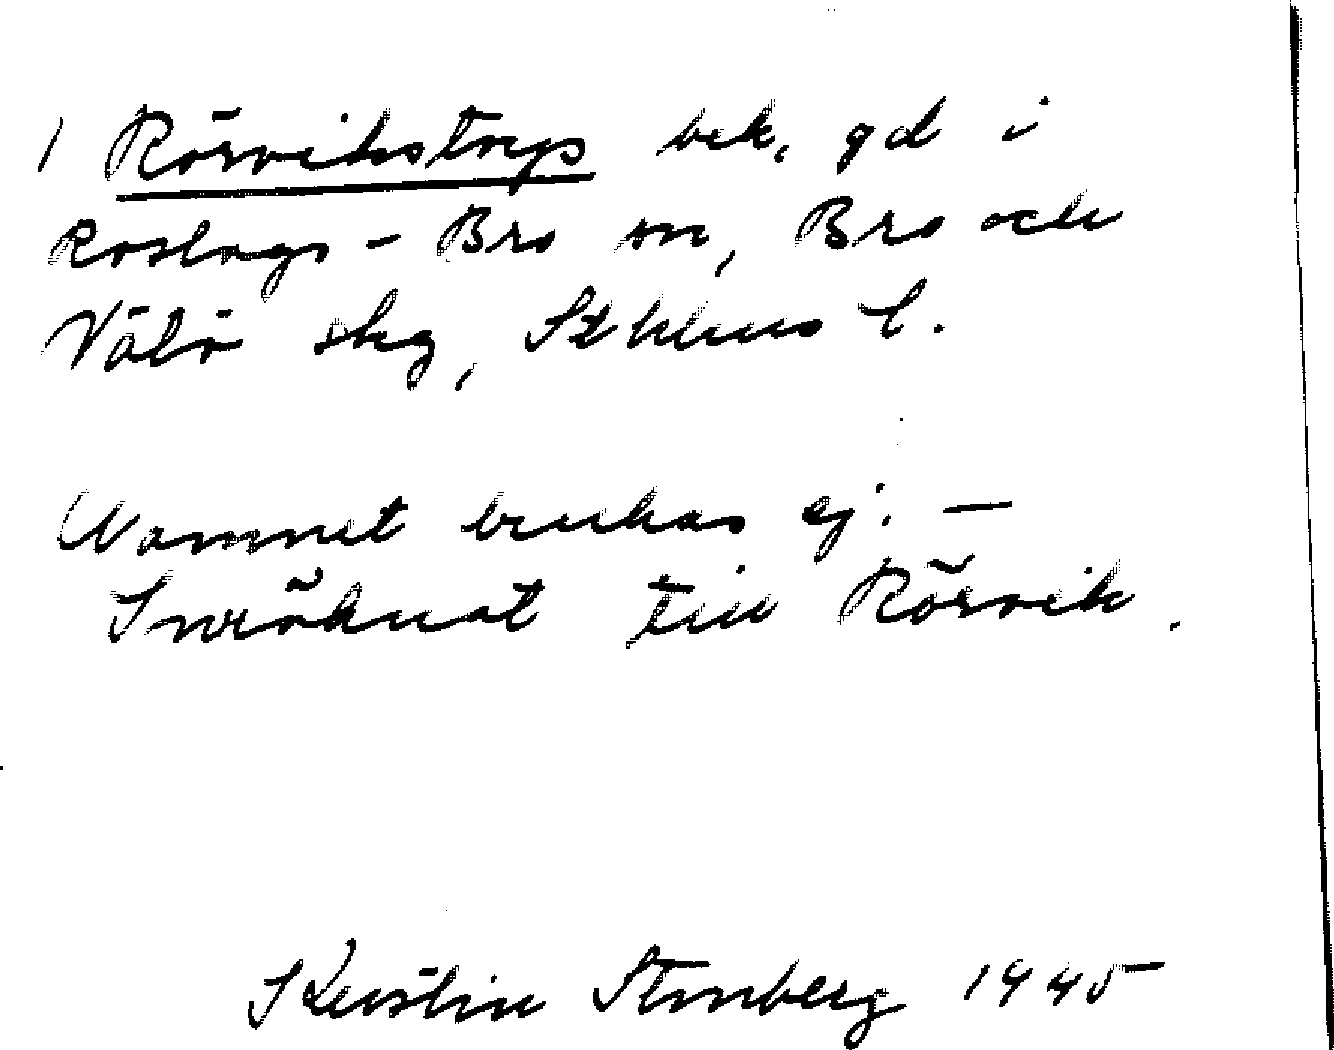 1 Rörvikstorp bek. gd i
Roslags-Bro sn, Bro och
Vätö skg, Sthlms l.
Namnet brukas ej. —
Inräknat till Rörvik.
Kerstin Stenberg 1945